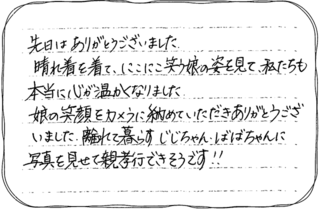 先日はありがとうございました
晴れ着を着て、にこにこ笑う娘の姿を見て、私たちも
本当に心が温かくなりました
娘の笑顔をカメラに納めていただきありがとうござ
いました. 離れて暮らす じじちゃん・ばばちゃんに
写真を見せて親孝行できそうです!!